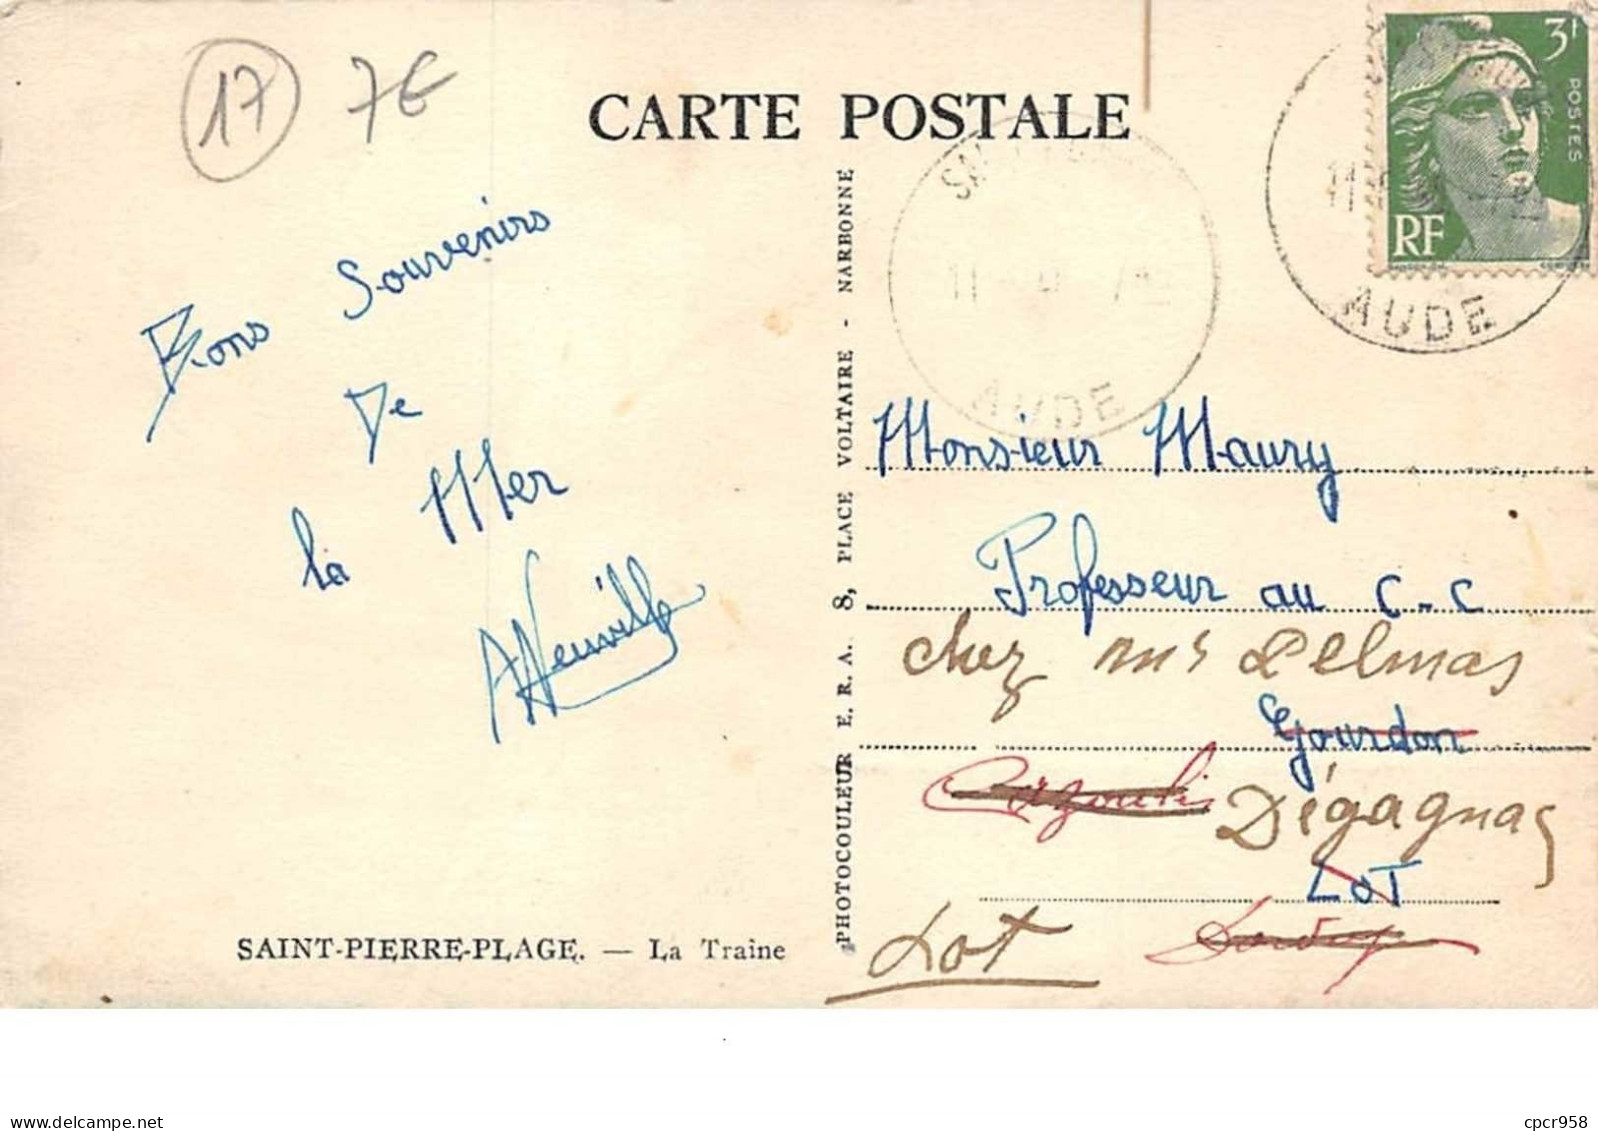 17 7€
CARTE POSTALE
3F
POSTES
RF
11
AUDE
11
AUDE
Bons Souvenirs
De
la Mer
ANeuville
PHOTOCOULEUR E. R. A. 8, PLACE VOLTAIRE - NARBONNE
Monsieur Maury
Professeur au C-C
chez
Delmas
Gourdon
Dégagnac
LOT
Lot
SAINT-PIERRE-PLAGE. — La Traine
delcampe.net
cpcr958